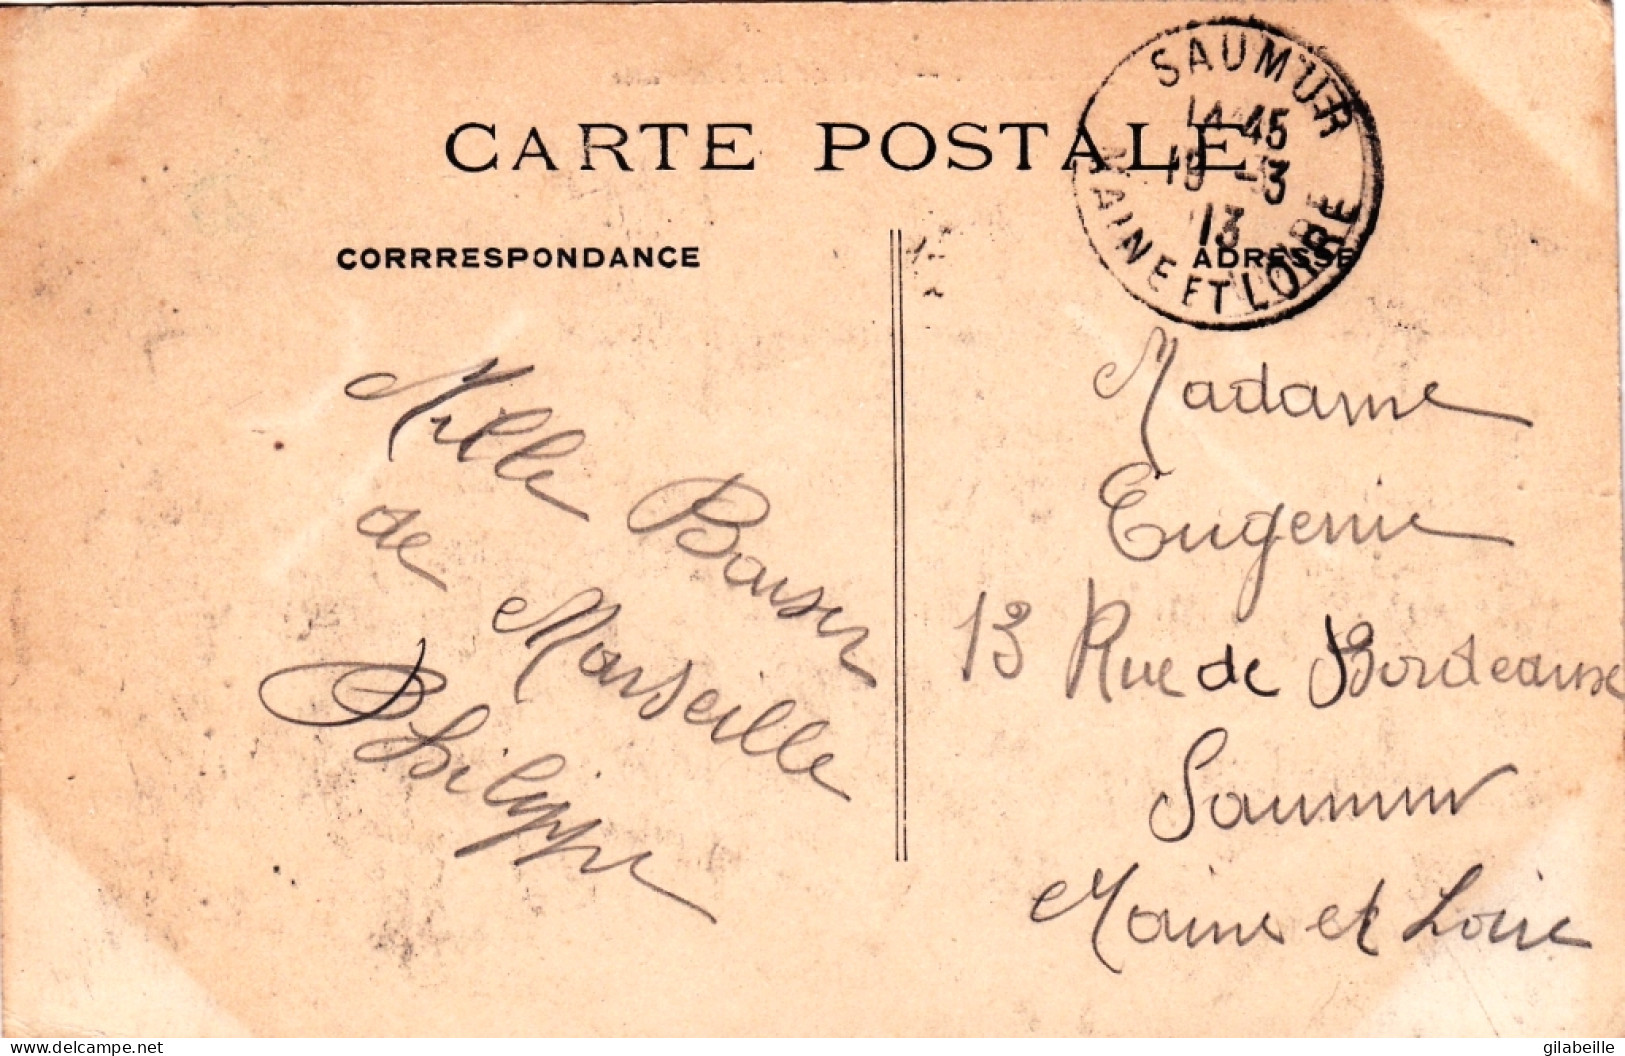 CARTE POSTALE
CORRRESPONDANCE
Mille Baiser
de Marseille
Philippe
SAUMUR
14 45
19 -3
13
MAINE ET LOIRE
ADRESSE
Madame
Eugenie
13 Rue de Bordeaux
Saumur
Maine et Loire
delcampe.net
gilabeille